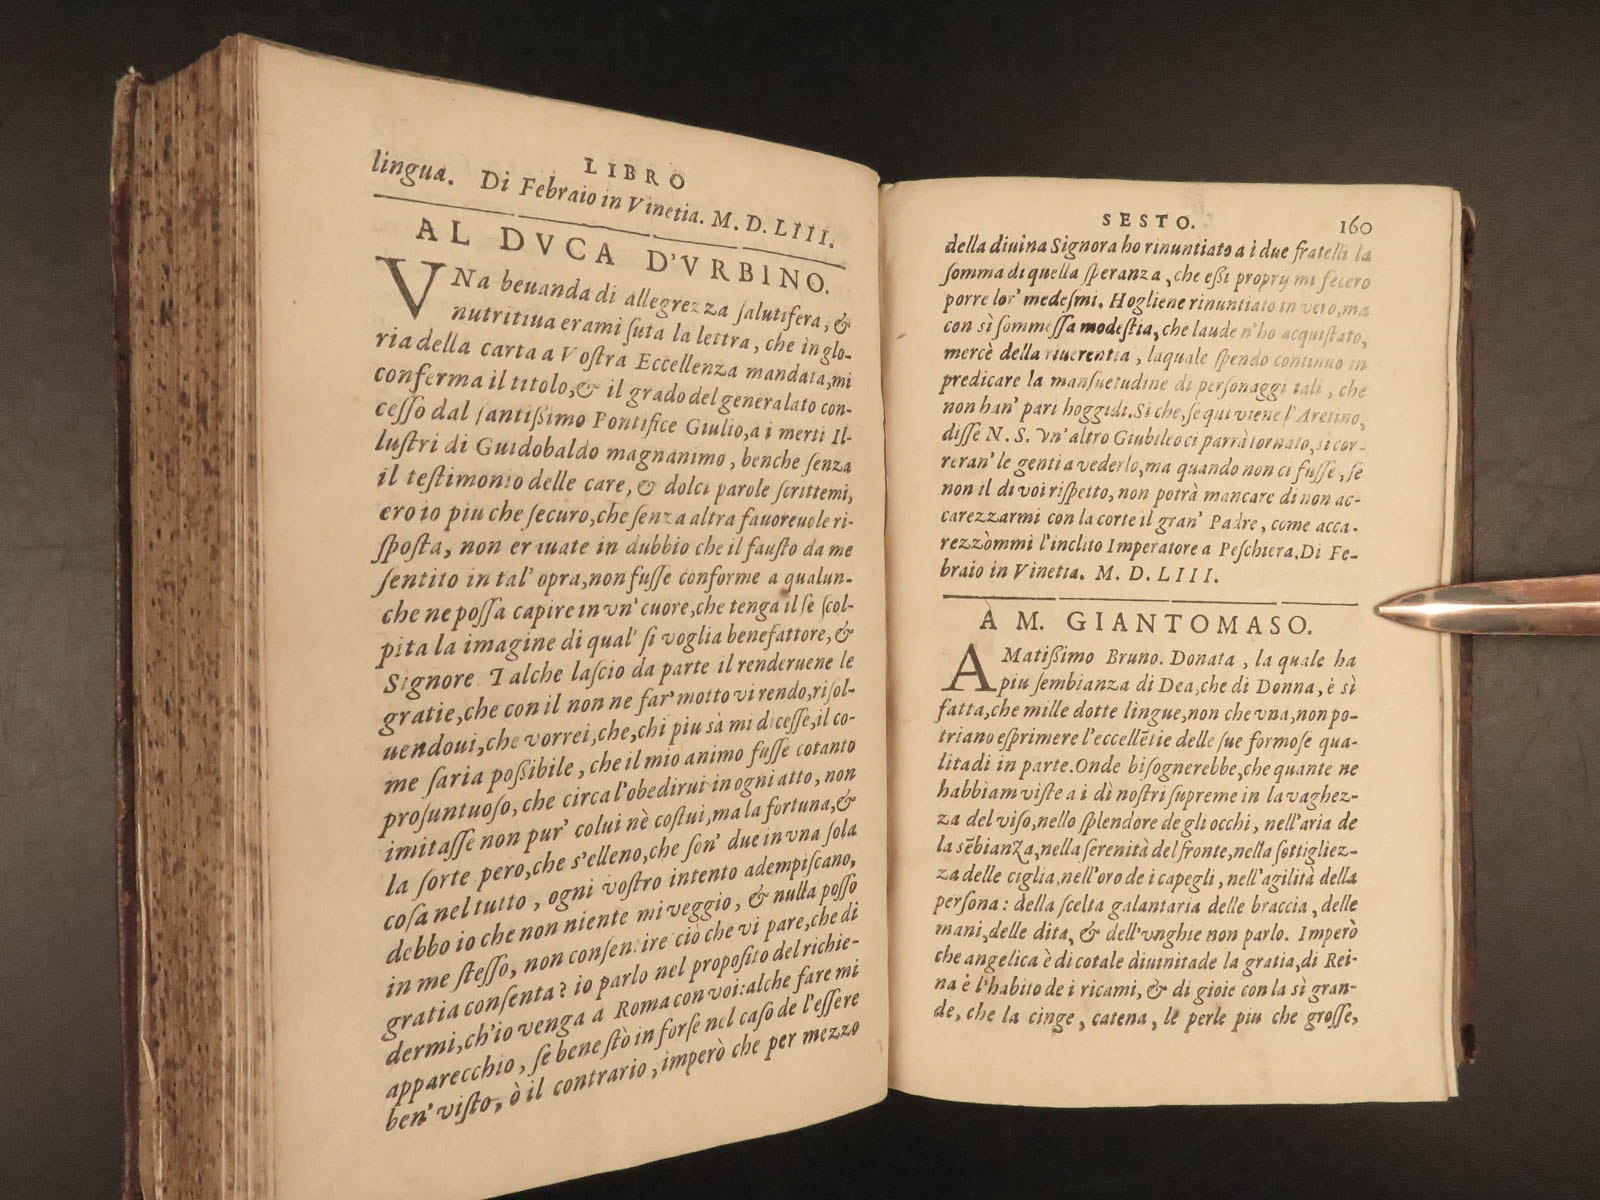 LIBRO
lingua. Di Febraio in Vinetia. M. D. LIII.
AL DVCA D'VRBINO.
VNa beuanda di allegrezza ſalutifera, &
nutritiua erami ſuta la lettra, che in glo-
ria della carta a Voſtra Eccellenza mandata, mi
conferma il titolo, & il grado del generalato con-
ceſſo dal ſantißimo Pontifice Giulio, a i merti Il-
luſtri di Guidobaldo magnanimo, benche ſenza
il teſtimonio delle care, & dolci parole ſcrittemi,
ero io piu che ſecuro, che ſenza altra fauoreuole ri-
ſpoſta, non erauate in dubbio che il fauſto da me
ſentito in tal' opra, non fuſſe conforme a qualun-
che ne poſſa capire in vn' cuore, che tenga il ſe ſcol-
pita la imagine di qual' ſi voglia benefattore, &
Signore Talche laſcio da parte il renderuene le
gratie, che con il non ne far' motto vi rendo, riſol-
uendoui, che vorrei, che, chi piu sà mi diceſſe, il co-
me ſaria poßibile, che il mio animo fuſſe cotanto
proſuntuoſo, che circa l'obedirui in ogni atto, non
imitaſſe non pur' colui nè coſtui, ma la fortuna, &
la ſorte pero, che s'elleno, che ſon' due in vna ſola
coſa nel tutto, ogni voſtro intento adempiſcano,
debbo io che non niente mi veggio, & nulla poſſo
in me ſteſſo, non conſentire ciò che vi pare, che di
gratia conſenta? io parlo nel propoſito del richie-
dermi, ch'io venga a Roma con voi: alche fare mi
apparecchio, ſe bene ſtò in forſe nel caſo de l'eſſere
ben' viſto, ò il contrario, imperò che per mezzo
SESTO. 160
della diuina Signora ho rinuntiato a i due fratelli la
ſomma di quella ſperanza, che eßi proprij mi fecero
porre lor' medeſmi. Hogliene rinuntiato in vero, ma
con sì ſommeſſa modeſtia, che laude n'ho acquiſtato,
mercè della riuerentia, laquale ſpendo continuo in
predicare la manſuetudine di perſonaggi tali, che
non han' pari hoggidi. Si che, ſe qui viene l'Aretino,
diſſe N. S. vn' altro Giubileo ci parrà tornato, sì cor-
reran' le genti a vederlo, ma quando non ci fuſſe, ſe
non il di voi riſpetto, non potrà mancare di non ac-
carezzarmi con la corte il gran' Padre, come acca-
rezzòmmi l'inclito Imperatore a Peſchiera. Di Fe-
braio in Vinetia. M. D. LIII.
À M. GIANTOMASO.
AMatißimo Bruno. Donata, la quale ha
piu ſembianza di Dea, che di Donna, è sì
fatta, che mille dotte lingue, non che vna, non po-
triano eſprimere l'eccellẽtie delle ſue formoſe qua-
lità di in parte. Onde biſognerebbe, che quante ne
habbiam viſte a i dì noſtri ſupreme in la vaghez-
za del viſo, nello ſplendore de gli occhi, nell'aria de
la sẽbianza, nella ſerenità del fronte, nella ſottigliez-
za delle ciglia, nell'oro de i capegli, nell'agilità della
perſona: della ſcelta galantaria delle braccia, delle
mani, delle dita, & dell'vnghie non parlo. Imperò
che angelica è di cotale diuinitade la gratia, di Rei-
na è l'habito de i ricami, & di gioie con la sì gran-
de, che la cinge, catena, le perle piu che groſſe,